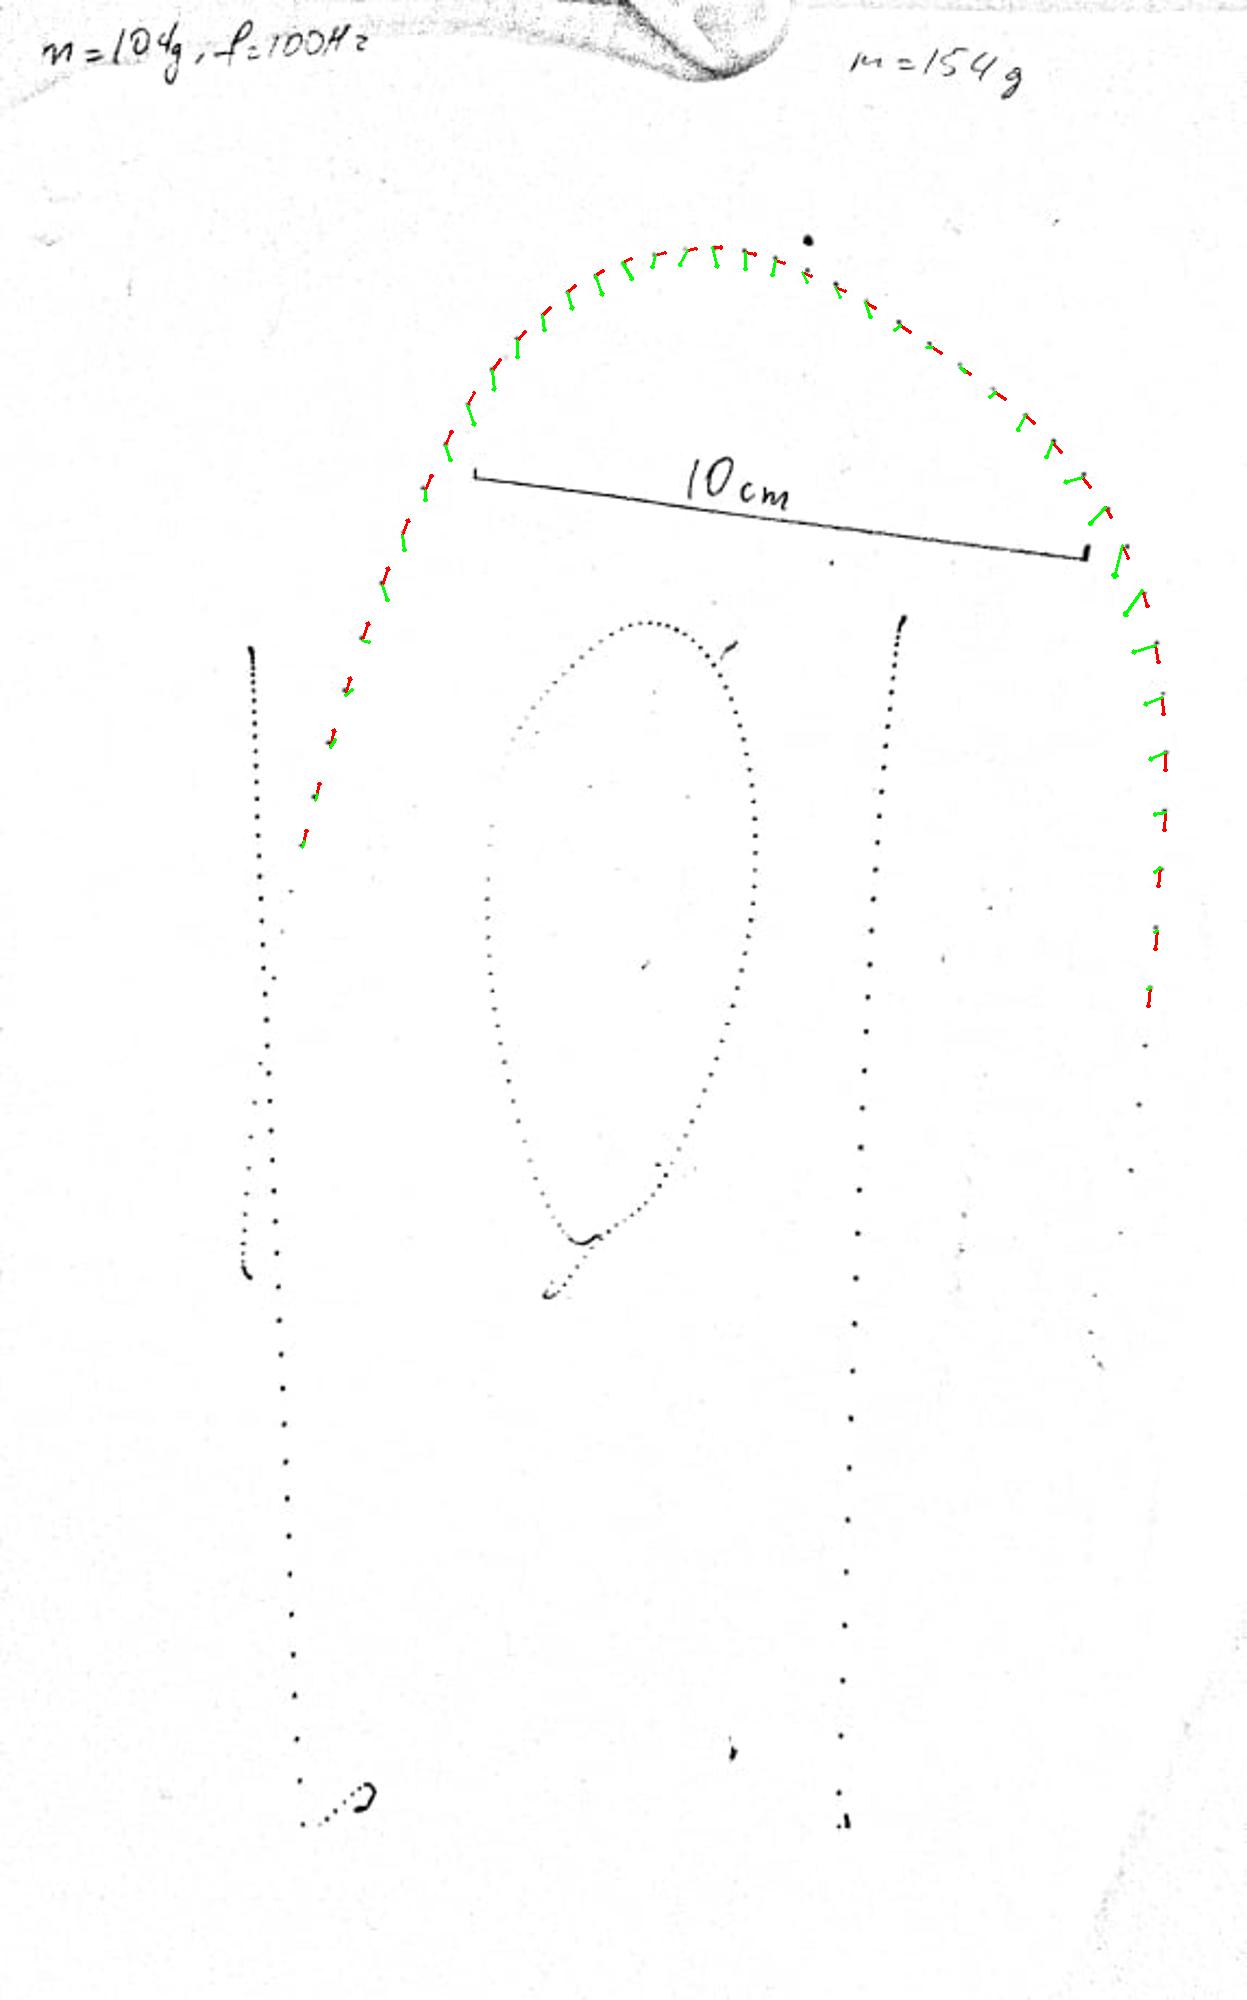 m=104g, f=100Hz
m=154g
10cm